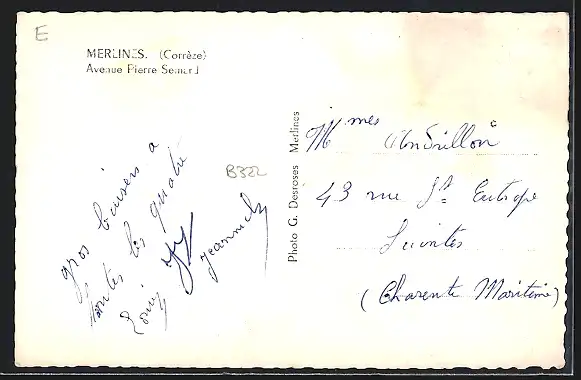 E
MERLINES. (Corrèze)
Avenue Pierre Semard
gros baisers à
toutes les quatre
Jeannick
B322
Photo G. Desroses Merlines
Mmes
43 rue St Eutrope
Saintes
(Charente Maritime)